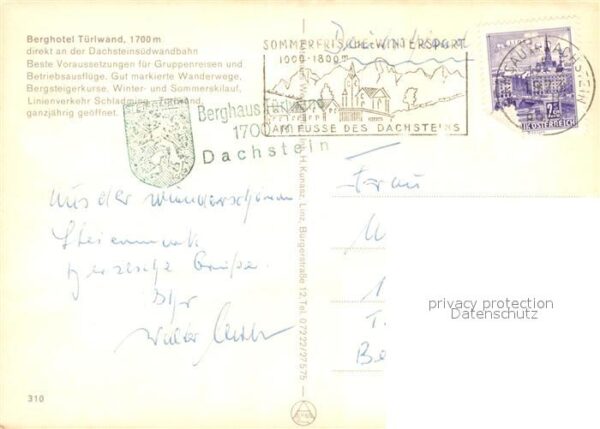 Berghotel Türlwand, 1700 m
direkt an der Dachsteinsüdwandbahn
Beste Voraussetzungen für Gruppenreisen und
Betriebsausflüge. Gut markierte Wanderwege,
Bergsteigerkurse, Winter- und Sommerskilauf,
Linienverkehr Schladming - Türlwand,
ganzjährig geöffnet.
SOMMERFRISCHE-WINTERSPORT
1000-1800 m
AM FUSSE DES DACHSTEINS
DACHSTEIN
2
REPUBLIK ÖSTERREICH
Berghaus Türlwand
1700 m
Dachstein
H. Kunasz, Linz, Bürgerstraße 12, Tel. 07222/27575
Aus der wunderschönen
Steiermark
herzliche Grüße.
Ihr
Walter
Frau
privacy protection
Datenschutz
310